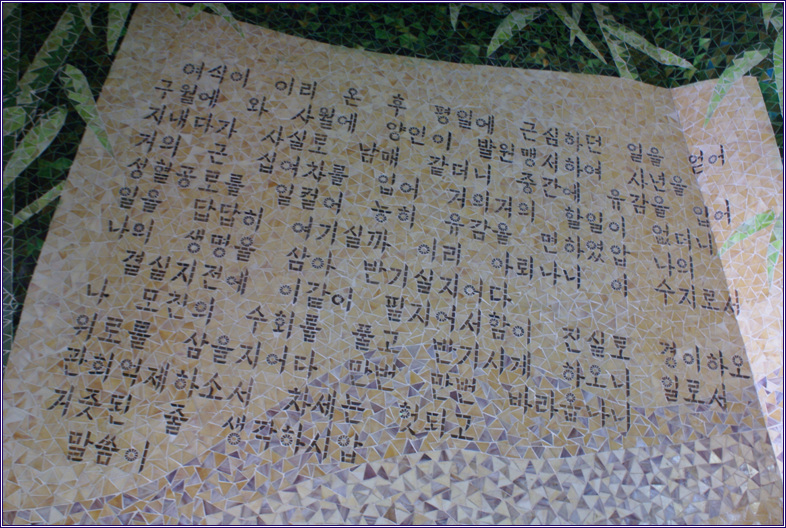 여식이 이리 온 후 평일에 근심하던 일을 얻어
구월에 와 사월에 양인이 발원 맹세하여 사년을
지내다가 사실로 남매 같더니 중간에 유감을 입어
거의 근 십여차를 입어 거의거의 할일이 없더니
성혈공로를 일컬어 능히 유감을 면하였압 나의
일을 답답히 여기실까 이리 아뢰나니 이 수지로서
나의 생명을 삼아 반기실지어다
결실지전에 이같이 필지어서함이 진실로 경이하오
나 모친의 수회를 풀고 반기시게 하오니 일로서
위로를 삼을지어다 만반 만번 바라압나니
관회억제하소서 차세는 헛되고
거짓된 줄 생각하시압
말씀이